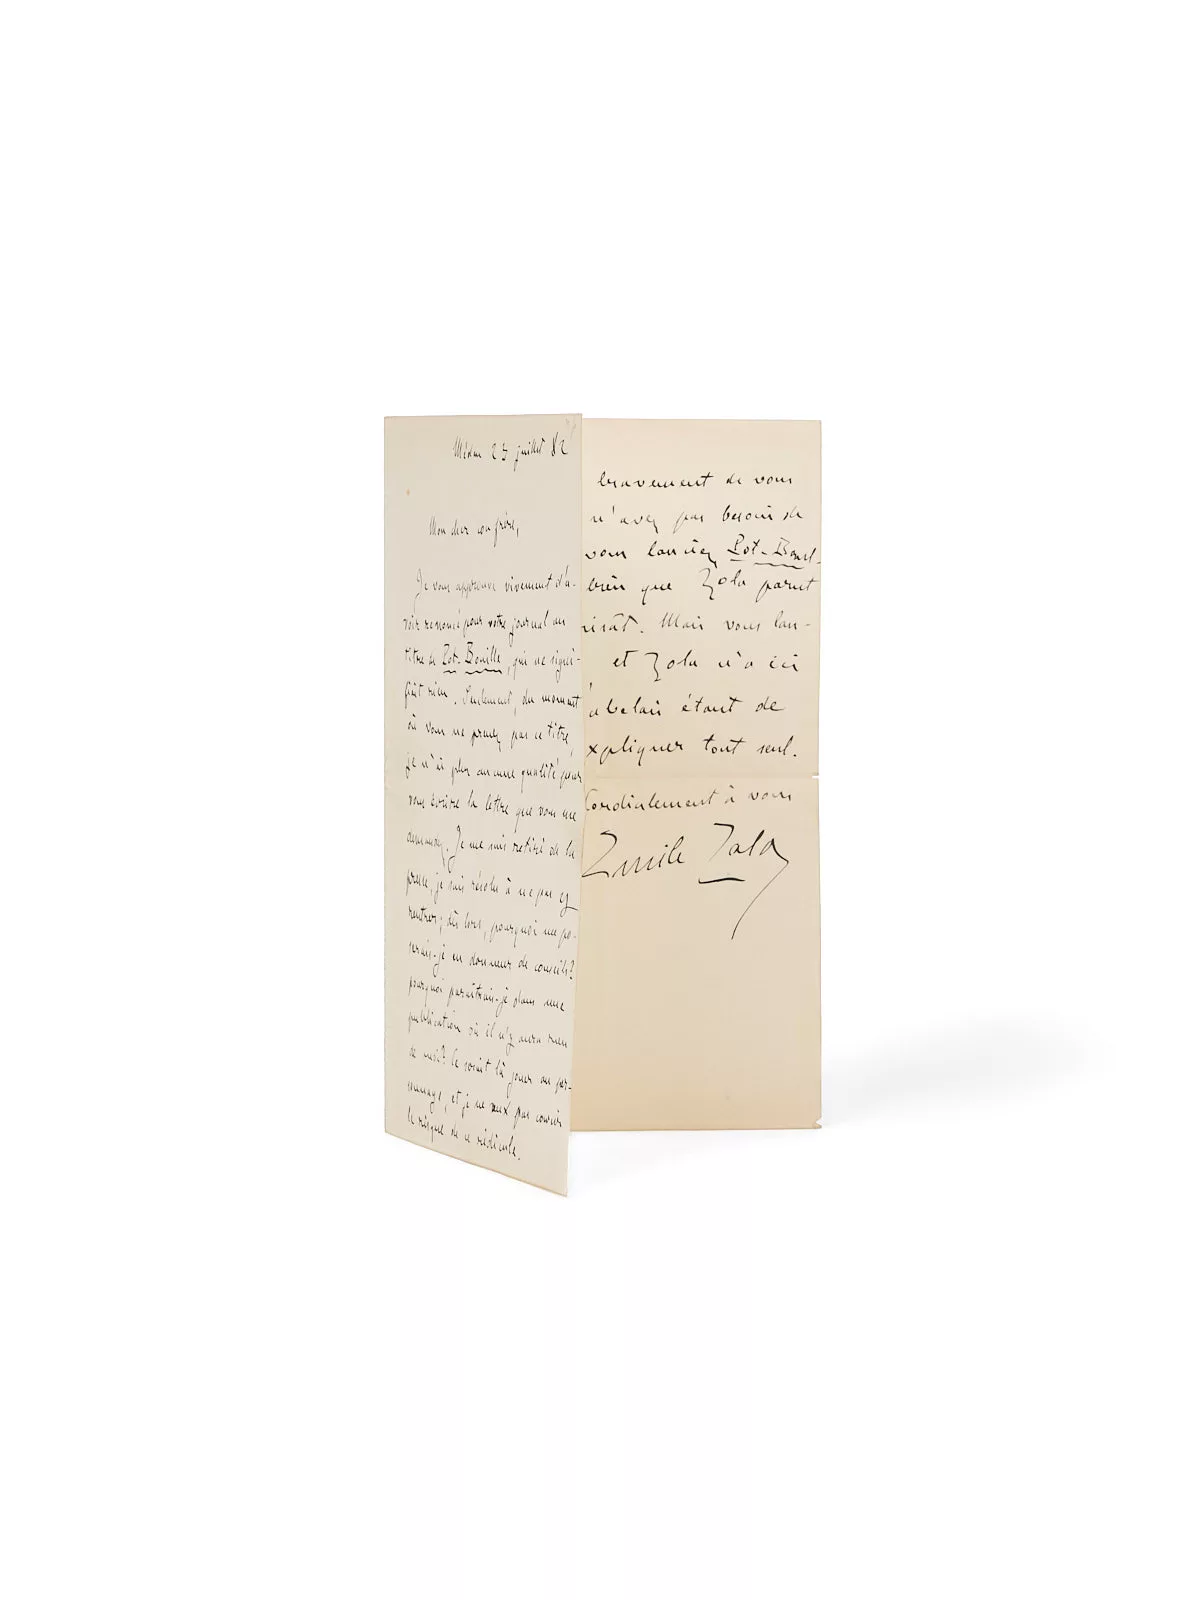 Médan 23 juillet 82
Mon cher confrère,
Je vous approuve vivement d'a-
voir renoncé pour votre journal au
titre de Pot-Bouille, qui ne signi-
fiait rien. Seulement, du moment
où vous ne prenez pas ce titre,
je n'ai plus aucune qualité pour
vous écrire la lettre que vous me
demandez. Je me suis retiré de la
presse, je suis résolu à ne pas y
rentrer; dès lors, pourquoi me po-
serais-je en donneur de conseils?
pourquoi paraîtrais-je dans une
publication où il n'y aura rien
de moi? Ce serait là jouer au per-
sonnage, et je ne veux pas courir
le risque de ce ridicule.
bravement de vous
n'avez pas besoin de
vous lanciez Pot-Bouil-
bien que Zola parut
isât. Mais vous lan-
et Zola n'a ici
abelais étant de
xpliquer tout seul.
Cordialement à vous
Emile Zola